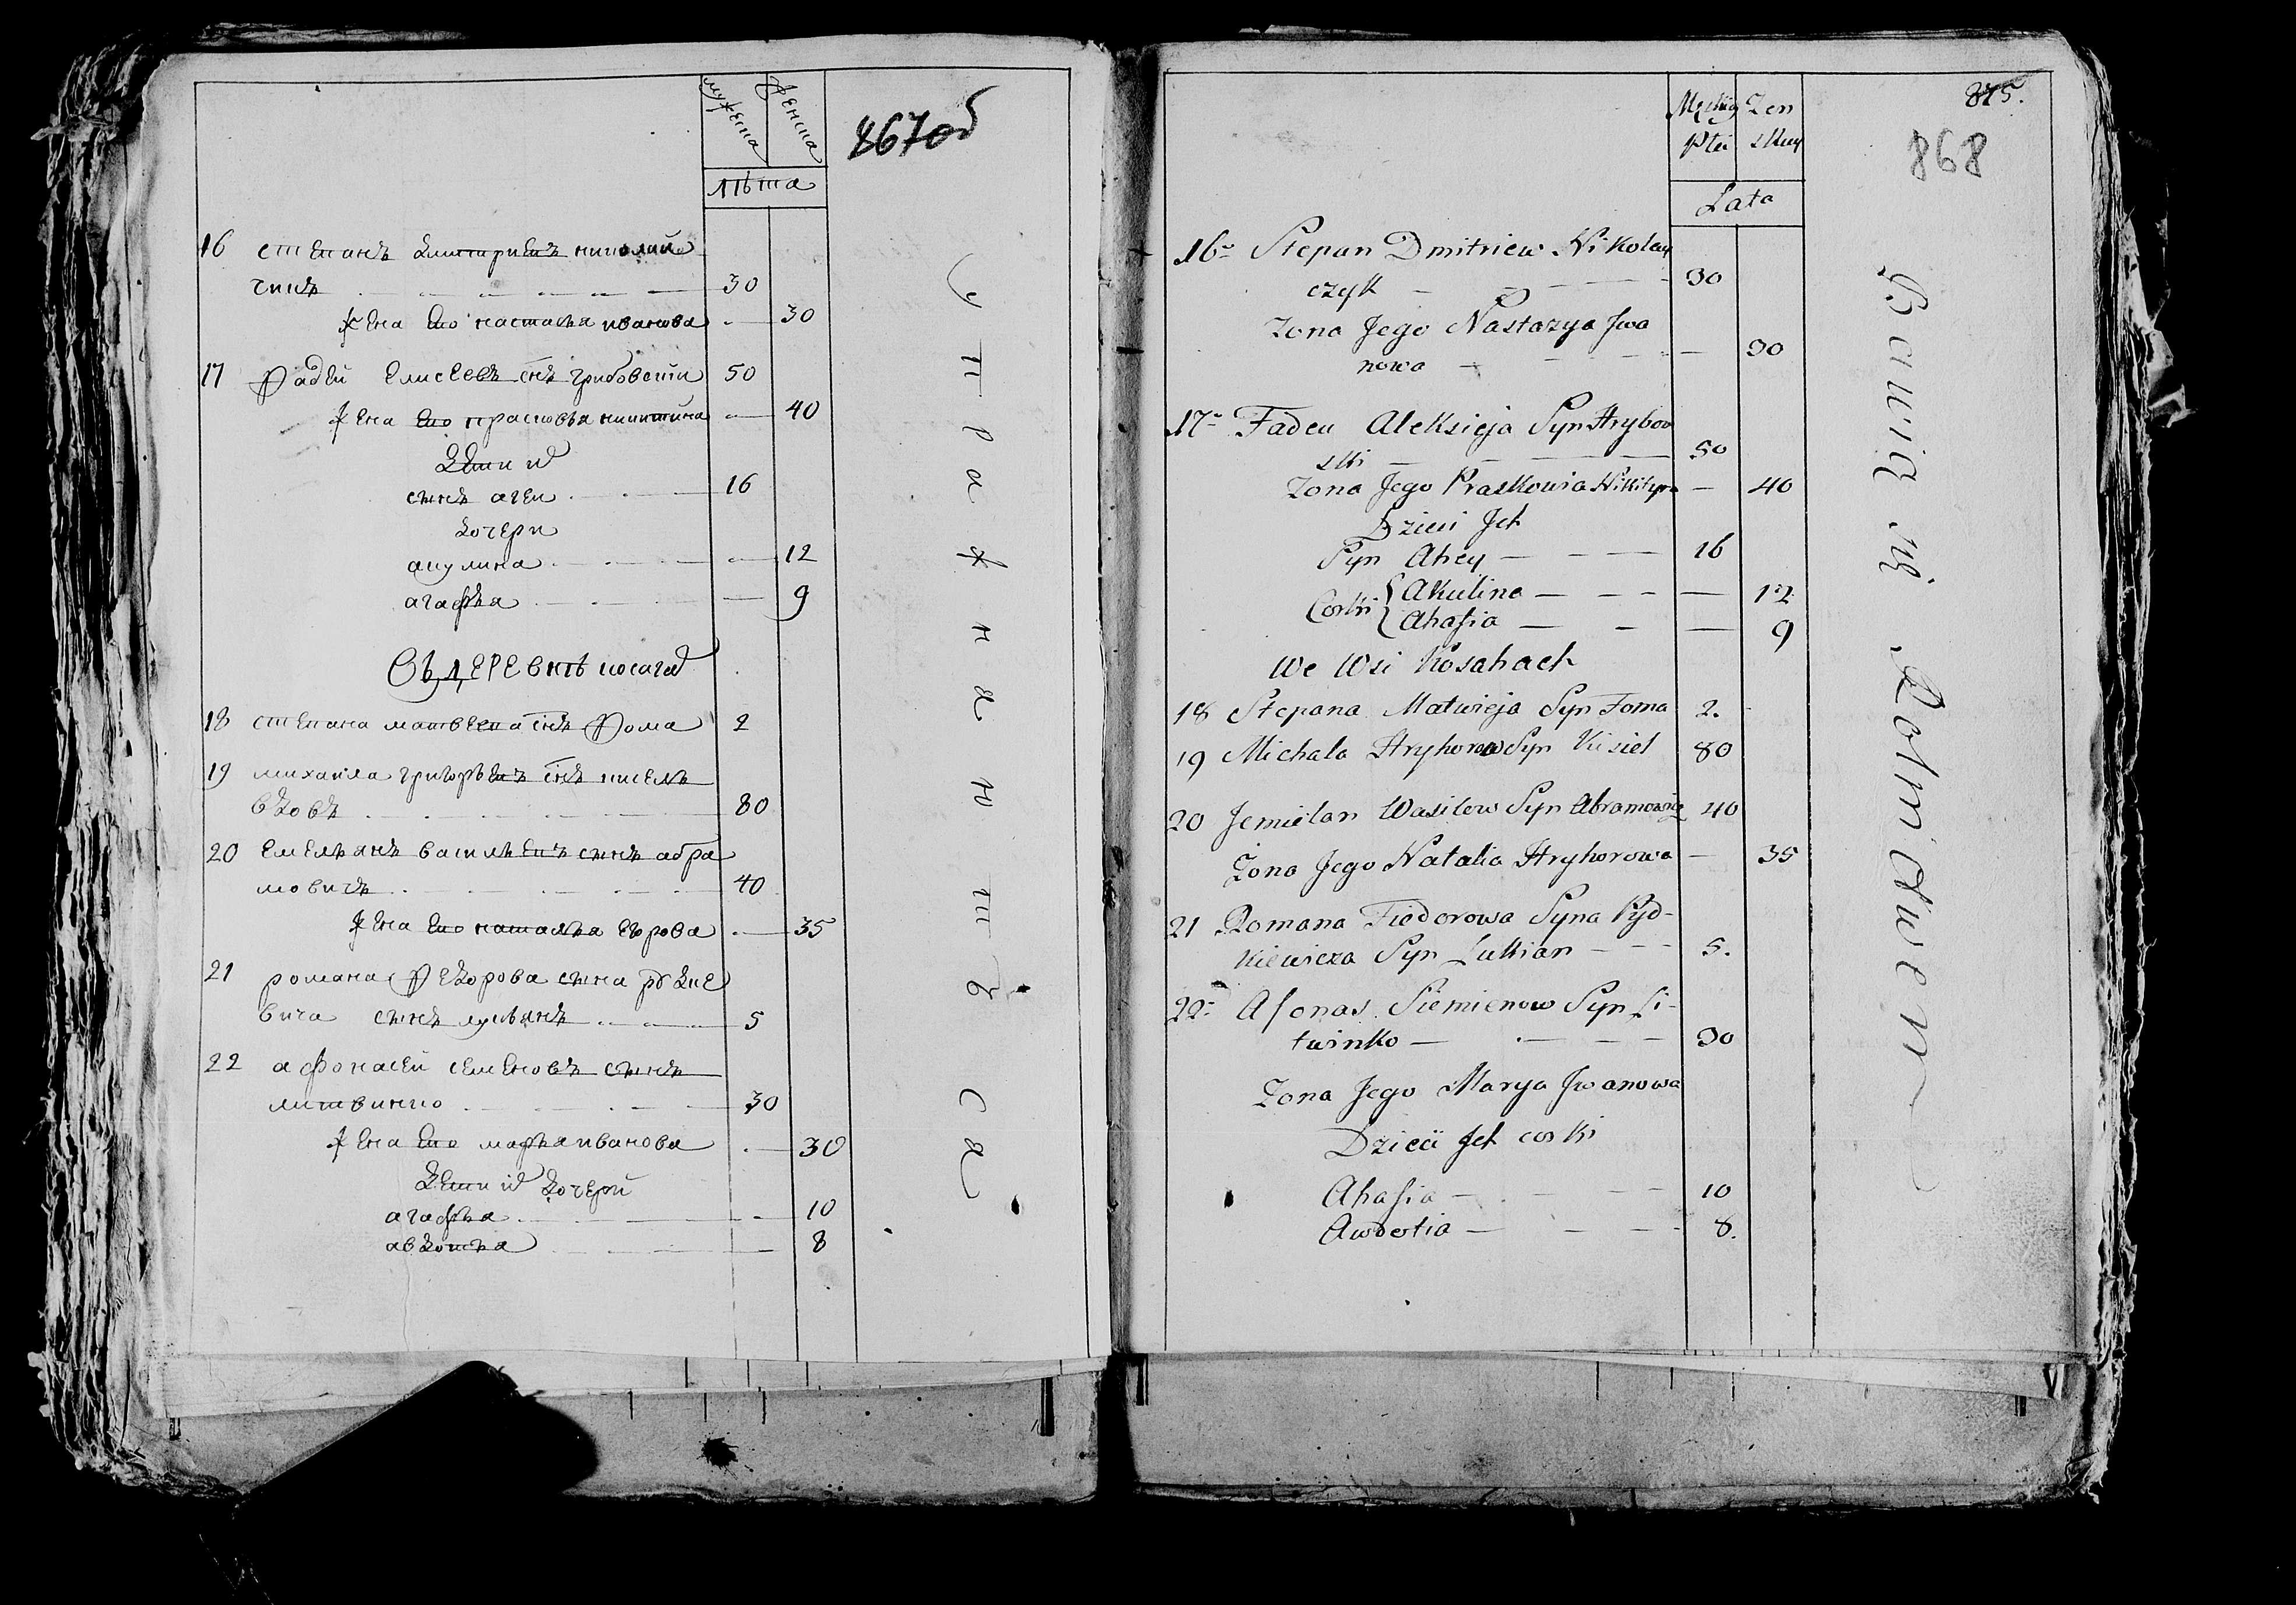 мужеска женска
867об
лѣта
16 степанъ дмитриевъ николай
чикъ 30
жена его настасья иванова 30
17 Фадей Елисеевъ снъ грибовски 50
жена его прасковья никитина 40
Дети их
сынъ агеи 16
дочери
акулина 12
агафья 9
Въ ДЕРЕВНѢ косагах
18 степана матвеева снъ Фома 2
19 михаила григорьевъ снъ кисель
вдовъ 80
20 Емельянъ васильевъ сынъ абра
мовичъ 40
жена его наталья егорова 35
21 романа Федорова сына
вича сынъ лукьянъ 5
22 афонасеи семеновъ сынъ
литвинко 30
жена его марья иванова 30
Дети их дочери
агафья 10
авдотья 8
упражнаютъса
Męskiey Żen
Płci skiey
Lata
875.
868
16 Stepan Dmitriew Nikolay
czyk 30
Zona Jego Nastazya Jwa
nowa 30
17 Fadeu Aleksieja Syn Hrybow
ski 50
Zona Jego Praskowia Nikityna 40
Dzieci Jch
Syn Ahey 16
Corki { Akulina 12
Ahafia 9
We Wsi Kosahach
18 Stepana Matwieja Syn Foma 2.
19 Michala Hryhorow Syn Kisiel 80
20 Jemielan Wasilew Syn Abramowicz 40
Żona Jego Natalia Hryhorowa 35
21 Romana Fiedorowa Syna Pyd-
kiewicza Syn Lukian 5.
22 Afonas Siemienow Syn Li-
twinko 30
Zona Jego Marya Jwanowa
Dzieci Jch corki
Ahafia 10
Awdotia 8.
Bawią się Rolnictwem